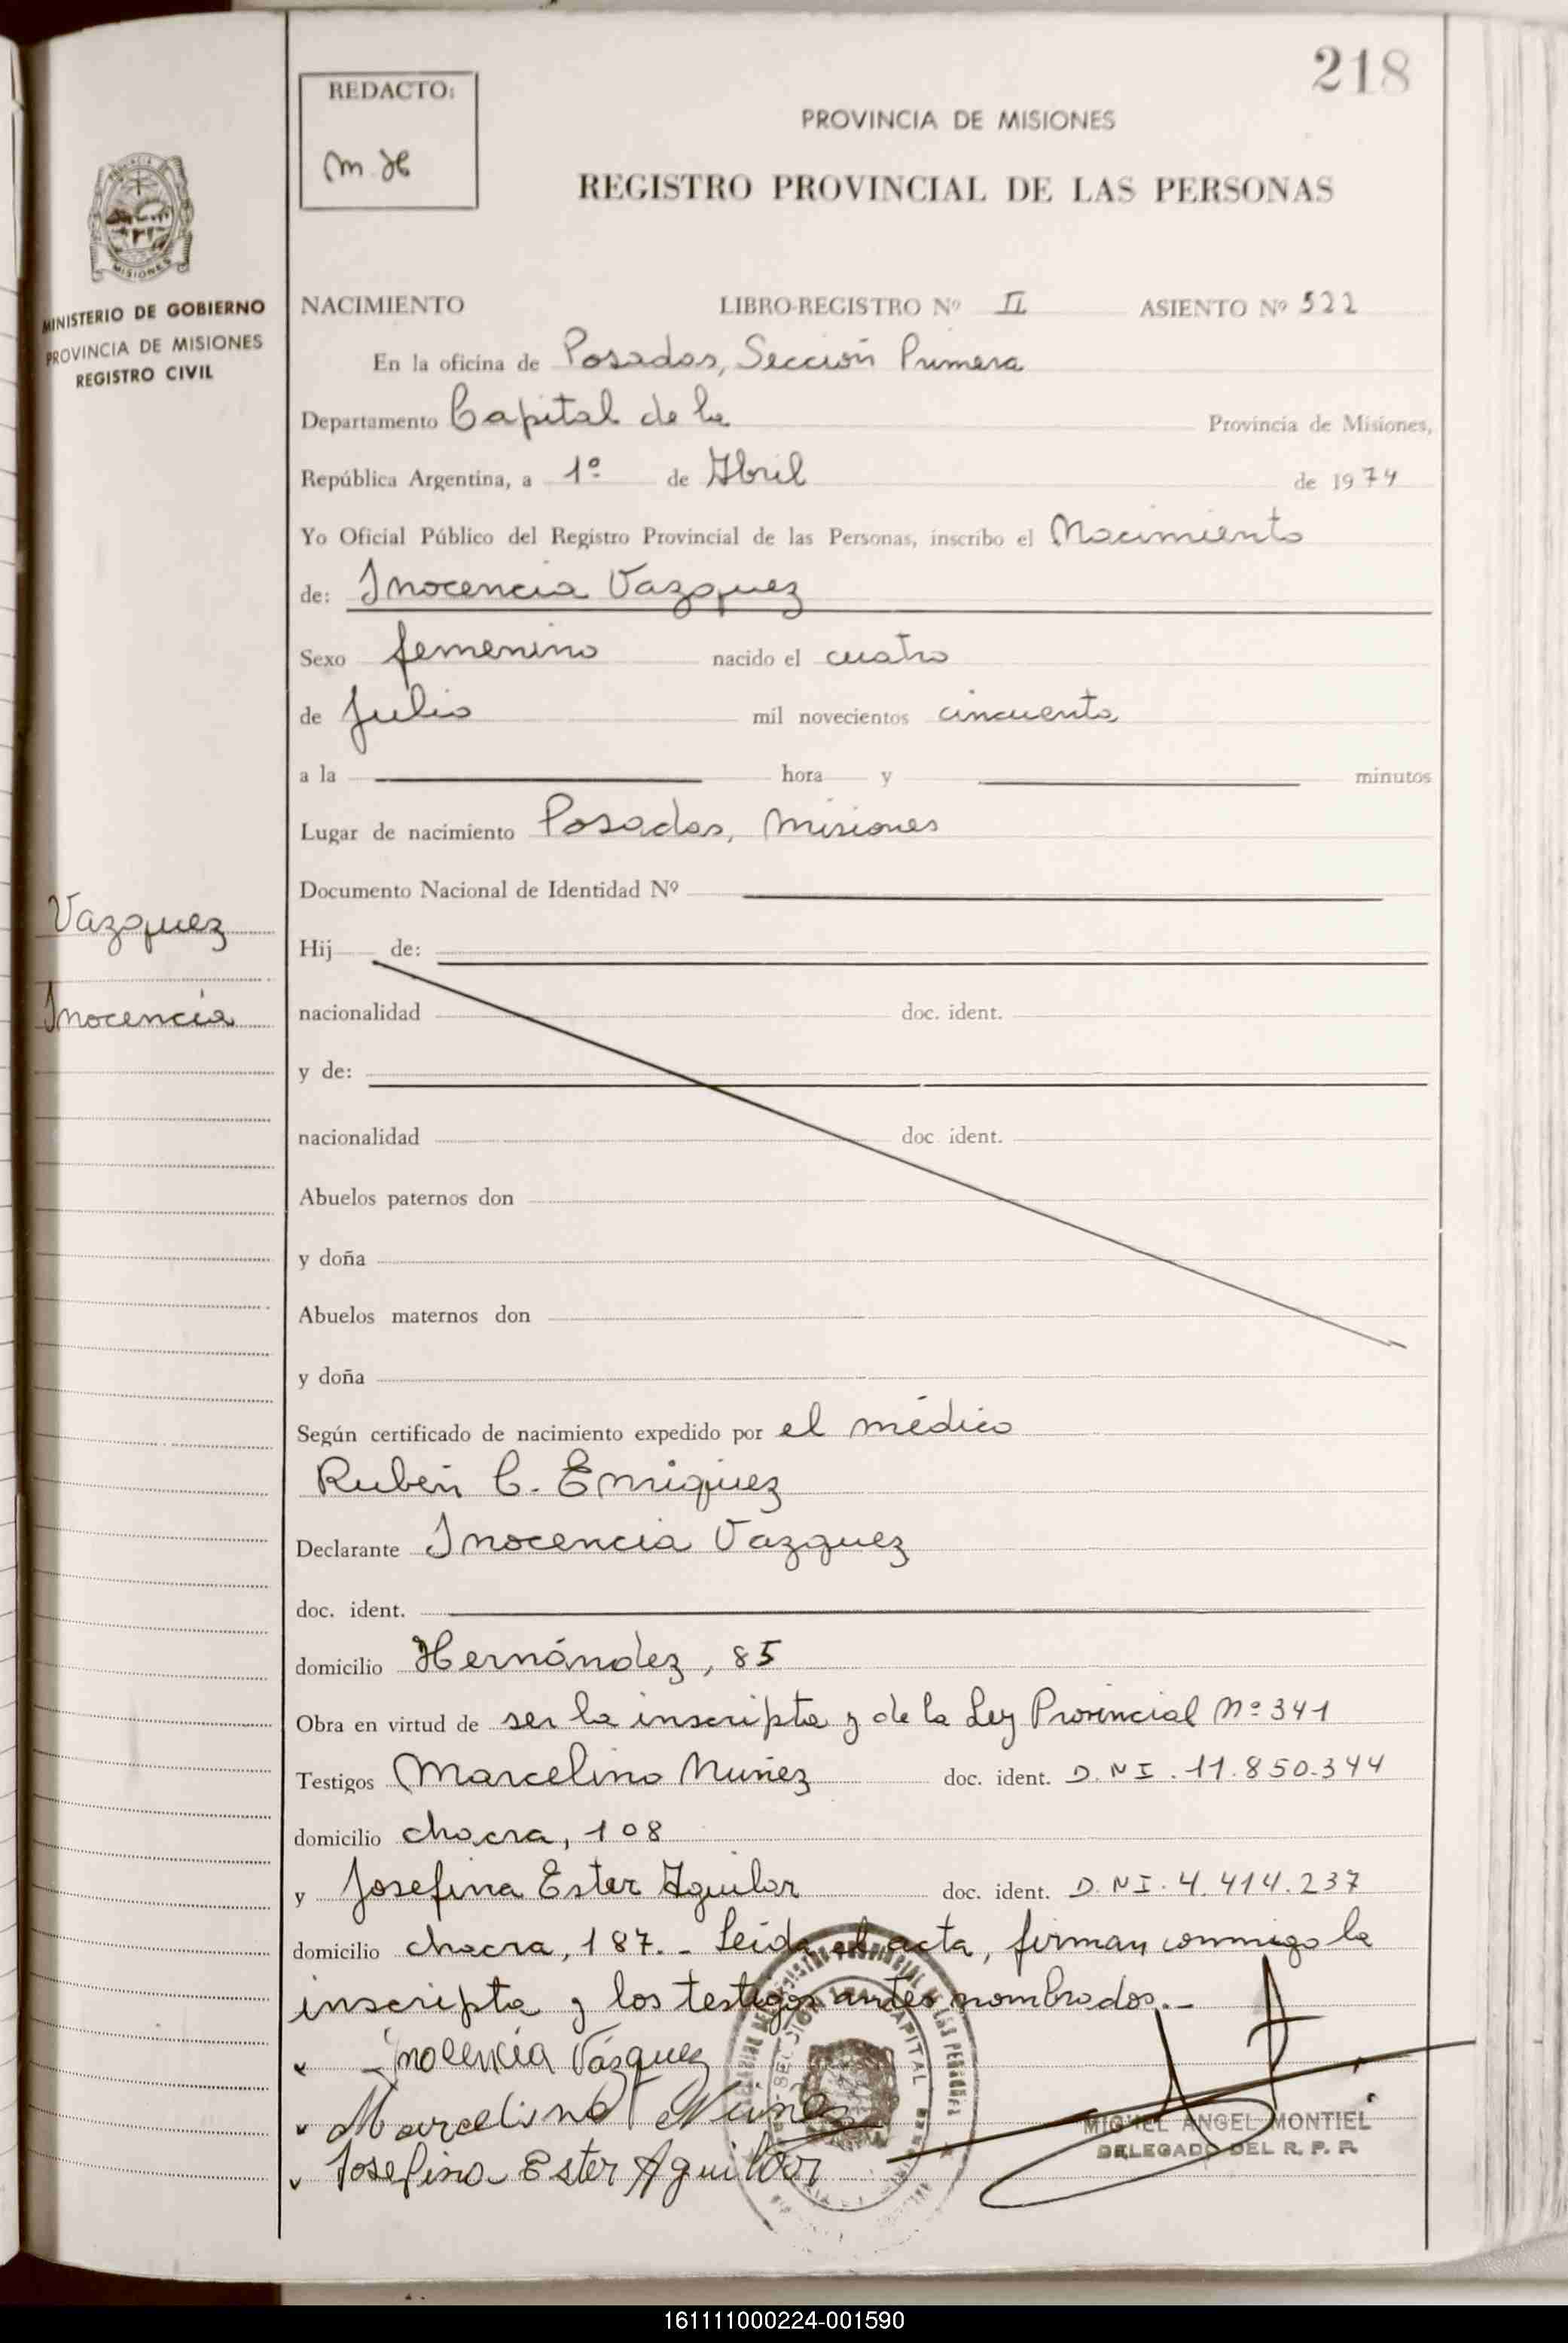 218
REDACTO:
M H
PROVINCIA DE MISIONES
REGISTRO PROVINCIAL DE LAS PERSONAS
MISIONES
MINISTERIO DE GOBIERNO
PROVINCIA DE MISIONES
REGISTRO CIVIL
NACIMIENTO LIBRO-REGISTRO Nº II ASIENTO Nº 522
En la oficina de Posadas, Sección Primera
Departamento Capital de la Provincia de Misiones,
República Argentina, a 1º de Abril de 1974
Yo Oficial Público del Registro Provincial de las Personas, inscribo el Nacimiento
de: Inocencia Vazquez
Sexo femenino nacido el cuatro
de Julio mil novecientos cincuenta
a la hora y minutos
Lugar de nacimiento Posadas, Misiones
Documento Nacional de Identidad Nº
Vazquez
Inocencia
Hij de:
nacionalidad doc. ident.
y de:
nacionalidad doc ident.
Abuelos paternos don
y doña
Abuelos maternos don
y doña
Según certificado de nacimiento expedido por el médico
Rubén C. Enriquez
Declarante Inocencia Vazquez
doc. ident.
domicilio Hernández, 85
Obra en virtud de ser la inscripta y de la Ley Provincial Nº 341
Testigos Marcelino Nuñez doc. ident. D.N.I. 11.850.344
domicilio chacra, 108
y Josefina Ester Aguilar doc. ident. D.N.I. 4.414.237
domicilio chacra, 187.- Leída el acta, firman conmigo la
inscripta y los testigos antes nombrados.-
Inocencia Vázquez
Marcelino Núñez
Josefina Ester Aguilar
MIGUEL ANGEL MONTIEL
DELEGADO DEL R. P. P.
161111000224-001590